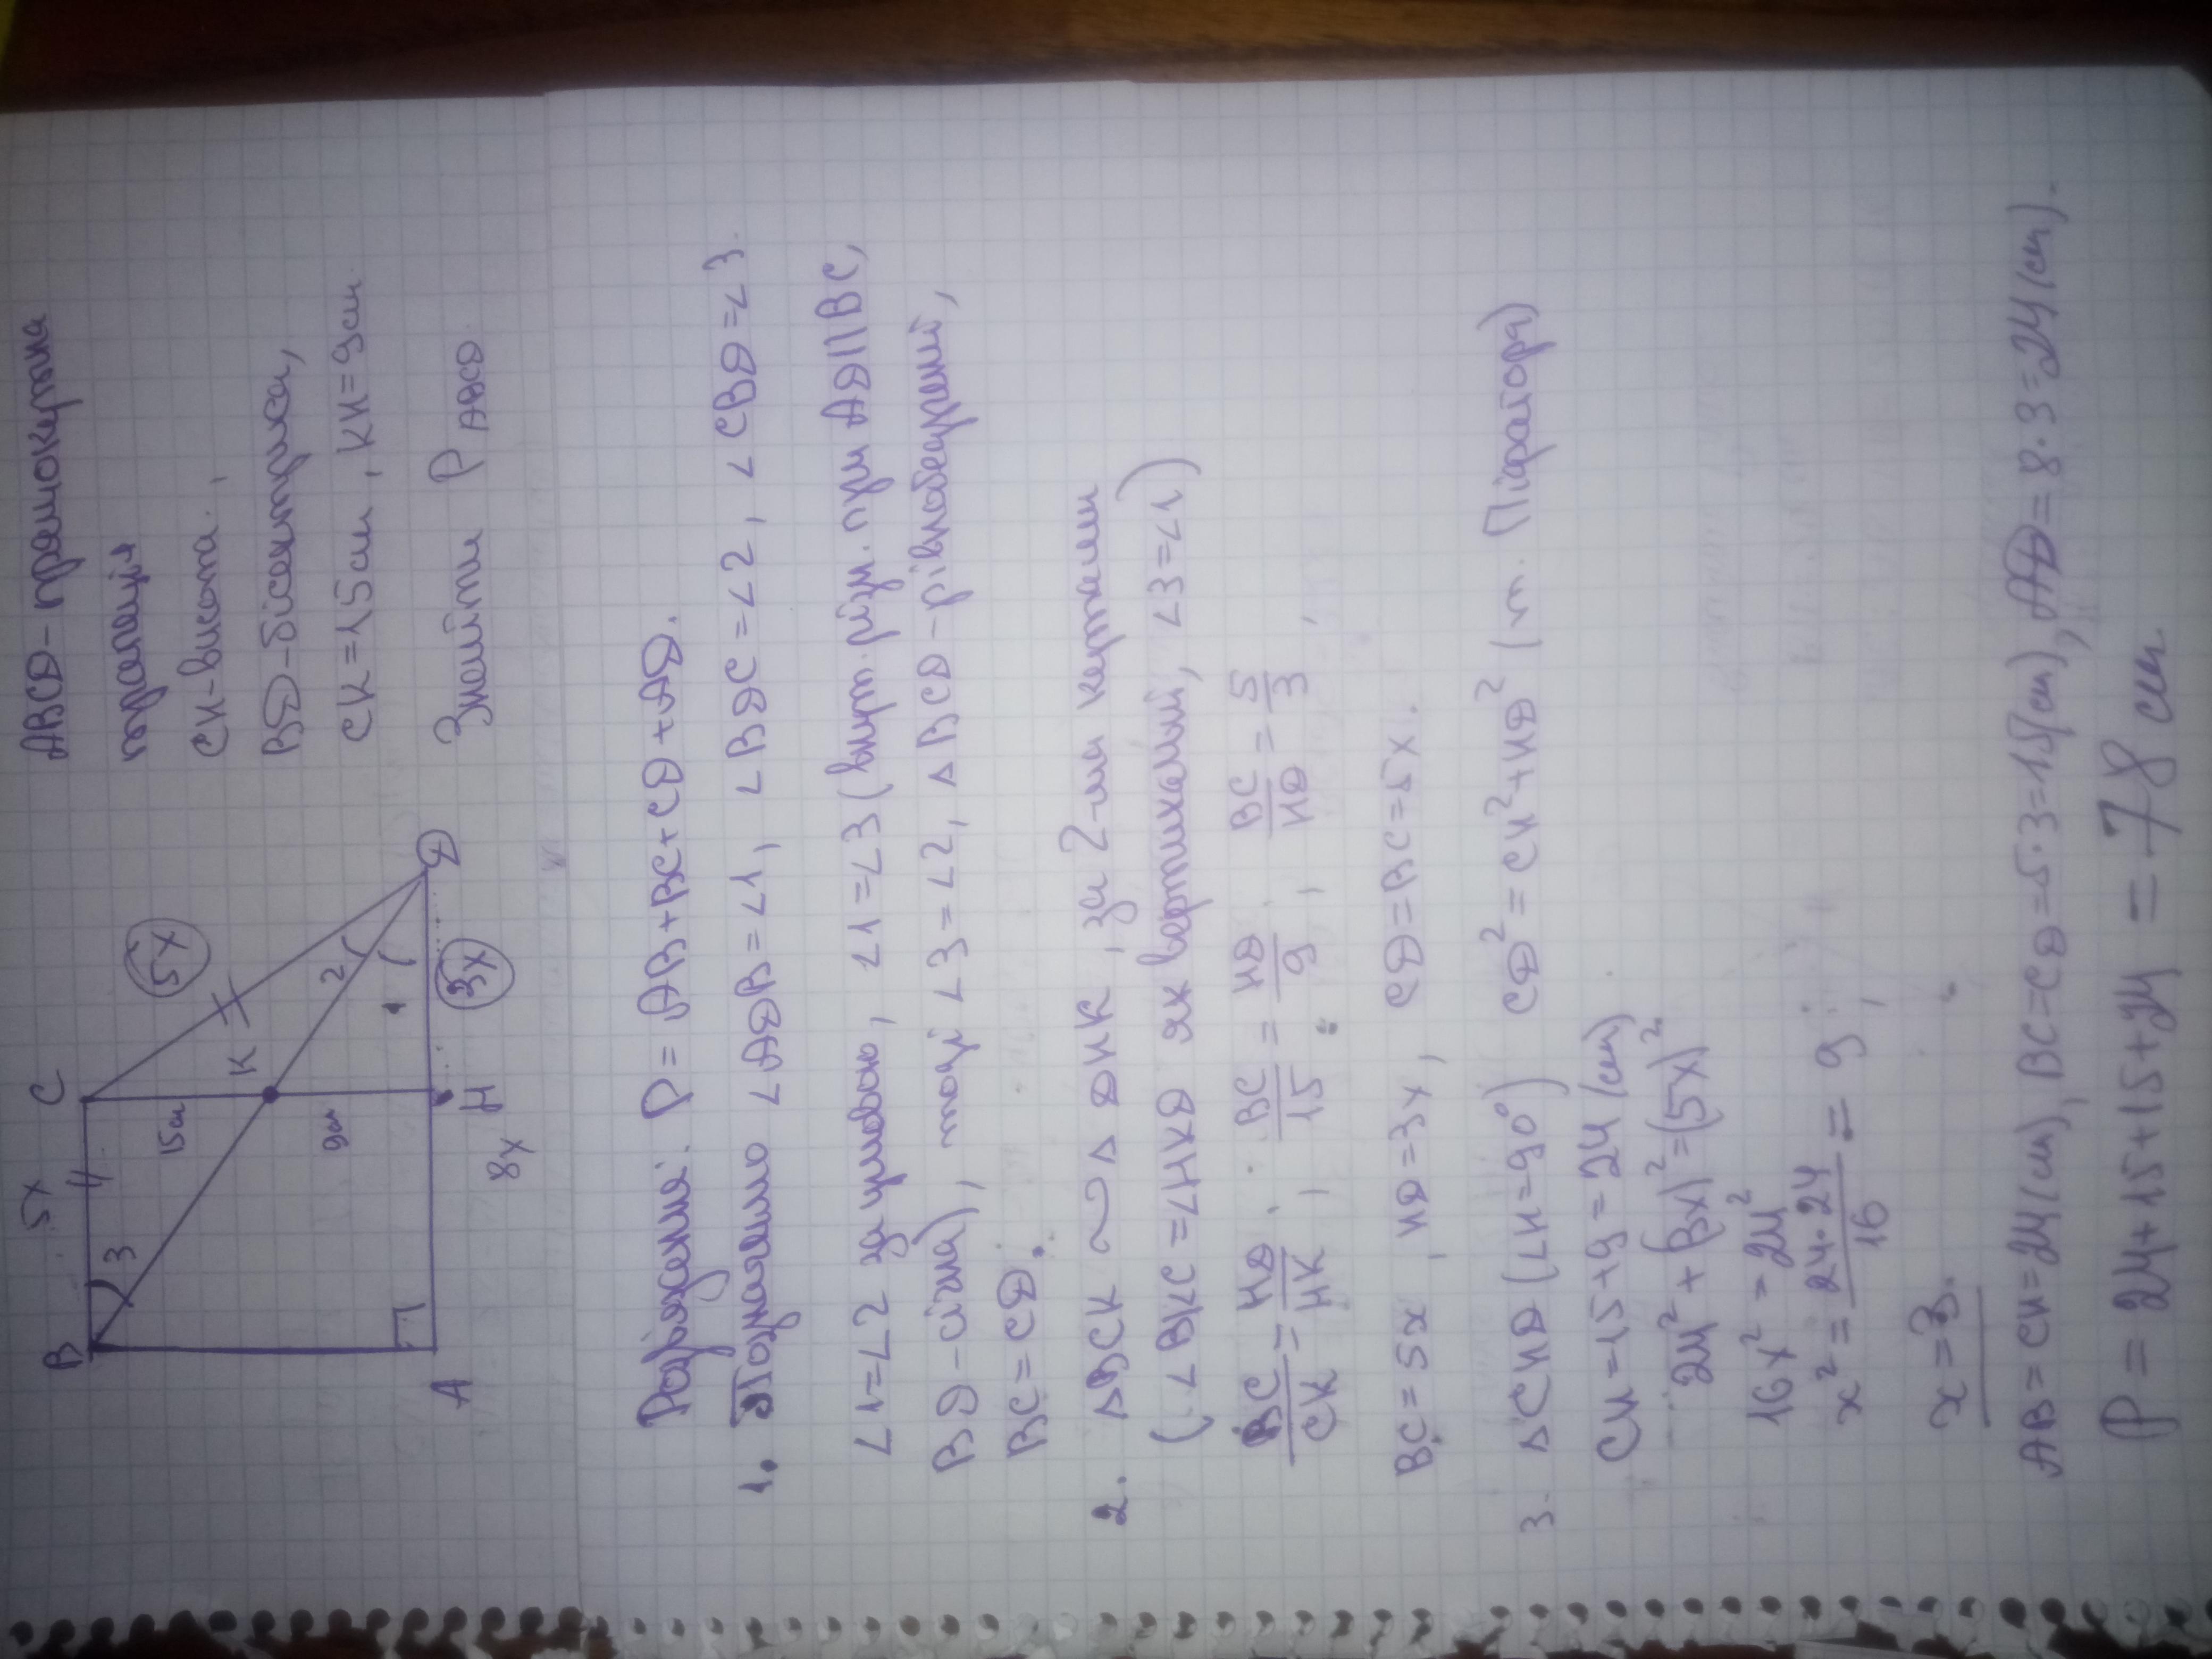 B
5x
C
3
15см
K
5x
9см
2
1
A
H
3x
D
8x
ABCD-прямокутна
трапеція
CH-висота,
BD-бісектриса,
CK=15см, KH=9см
Знайти P ABCD
Розв'язення. P=AB+BC+CD+AD.
1. Позначимо ∠ADB=∠1, ∠BDC=∠2, ∠CBD=∠3.
∠1=∠2 за умовою, ∠1=∠3 (внутр. різн. при AD||BC,
BD-січна), тоді ∠3=∠2, ΔBCD-рівнобедрений,
BC=CD.
2. ΔBCK ~ ΔDHK, за 2-ма кутами
(∠BKC=∠HKD як вертикальні, ∠3=∠1)
BC/CK = HD/HK, BC/15 = HD/9, BC/HD = 5/3,
BC=5x, HD=3x, CD=BC=5x.
3. ΔCHD (∠H=90°) CD²=CH²+HD² (т. Піфагора)
CH=15+9=24(см)
24²+(3x)²=(5x)²
16x²=24²
x²=24·24/16=9,
x=3.
AB=CH=24(см), BC=CD=5·3=15(см), AD=8·3=24(см).
P=24+15+15+24=78см